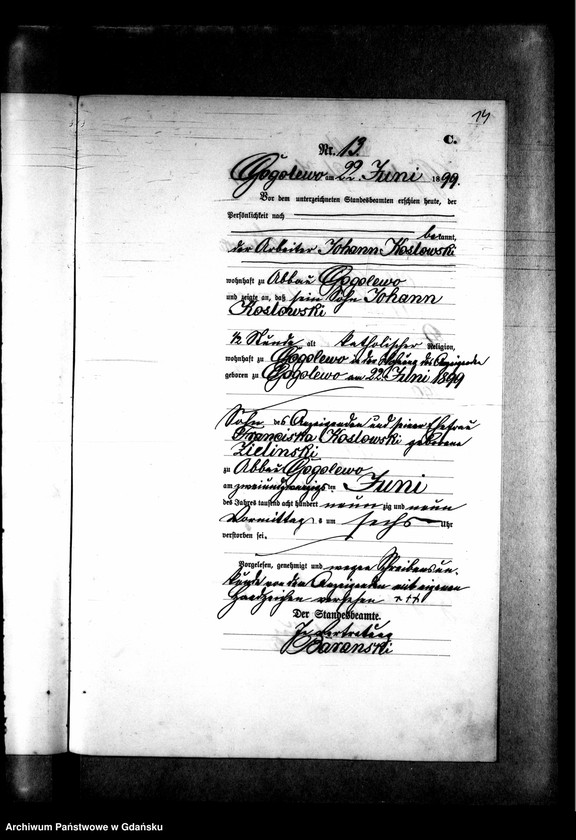 14
C.
Nr. 13.
Gogolewo am 22. Juni 1899.
Vor dem unterzeichneten Standesbeamten erschien heute, der
Persönlichkeit nach
bekannt,
der Arbeiter Johann Koslowski
wohnhaft zu Abbau Gogolewo
und zeigte an, daß sein Sohn Johann
Koslowski
1/2 Stunde alt katholischer Religion,
wohnhaft zu Gogolewo in der Wohnung des Anzeigenden
geboren zu Gogolewo am 22. Juni 1899
Sohn des Anzeigenden und seiner Ehefrau
Franciska Koslowski geborene
Zielinski
zu Abbau Gogolewo
am zweiundzwanzigsten Juni
des Jahres tausend acht hundert neunzig und neun
Vormittag s um sechs Uhr
verstorben sei.
Vorgelesen, genehmigt und wegen Schreibensun-
kunde von dem Anzeigenden mit eigenem
Handzeichen versehen +++
Der Standesbeamte.
In Vertretung
Baranski
Archiwum Państwowe w Gdańsku